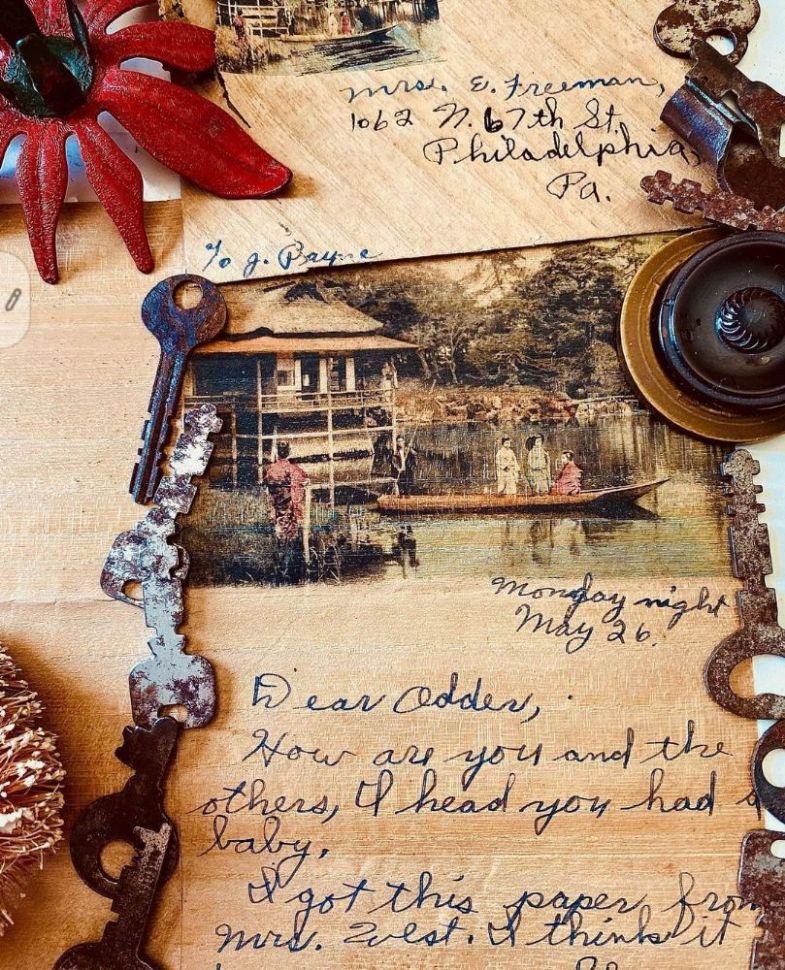 Mrs. E. Freeman,
1062 N. 67th St.
Philadelphia,
Pa.
To J. Bayne
Monday night
May 26.
Dear Odder,
How are you and the
others, I head you had a
baby,
I got this paper from
Mrs. West. I think it